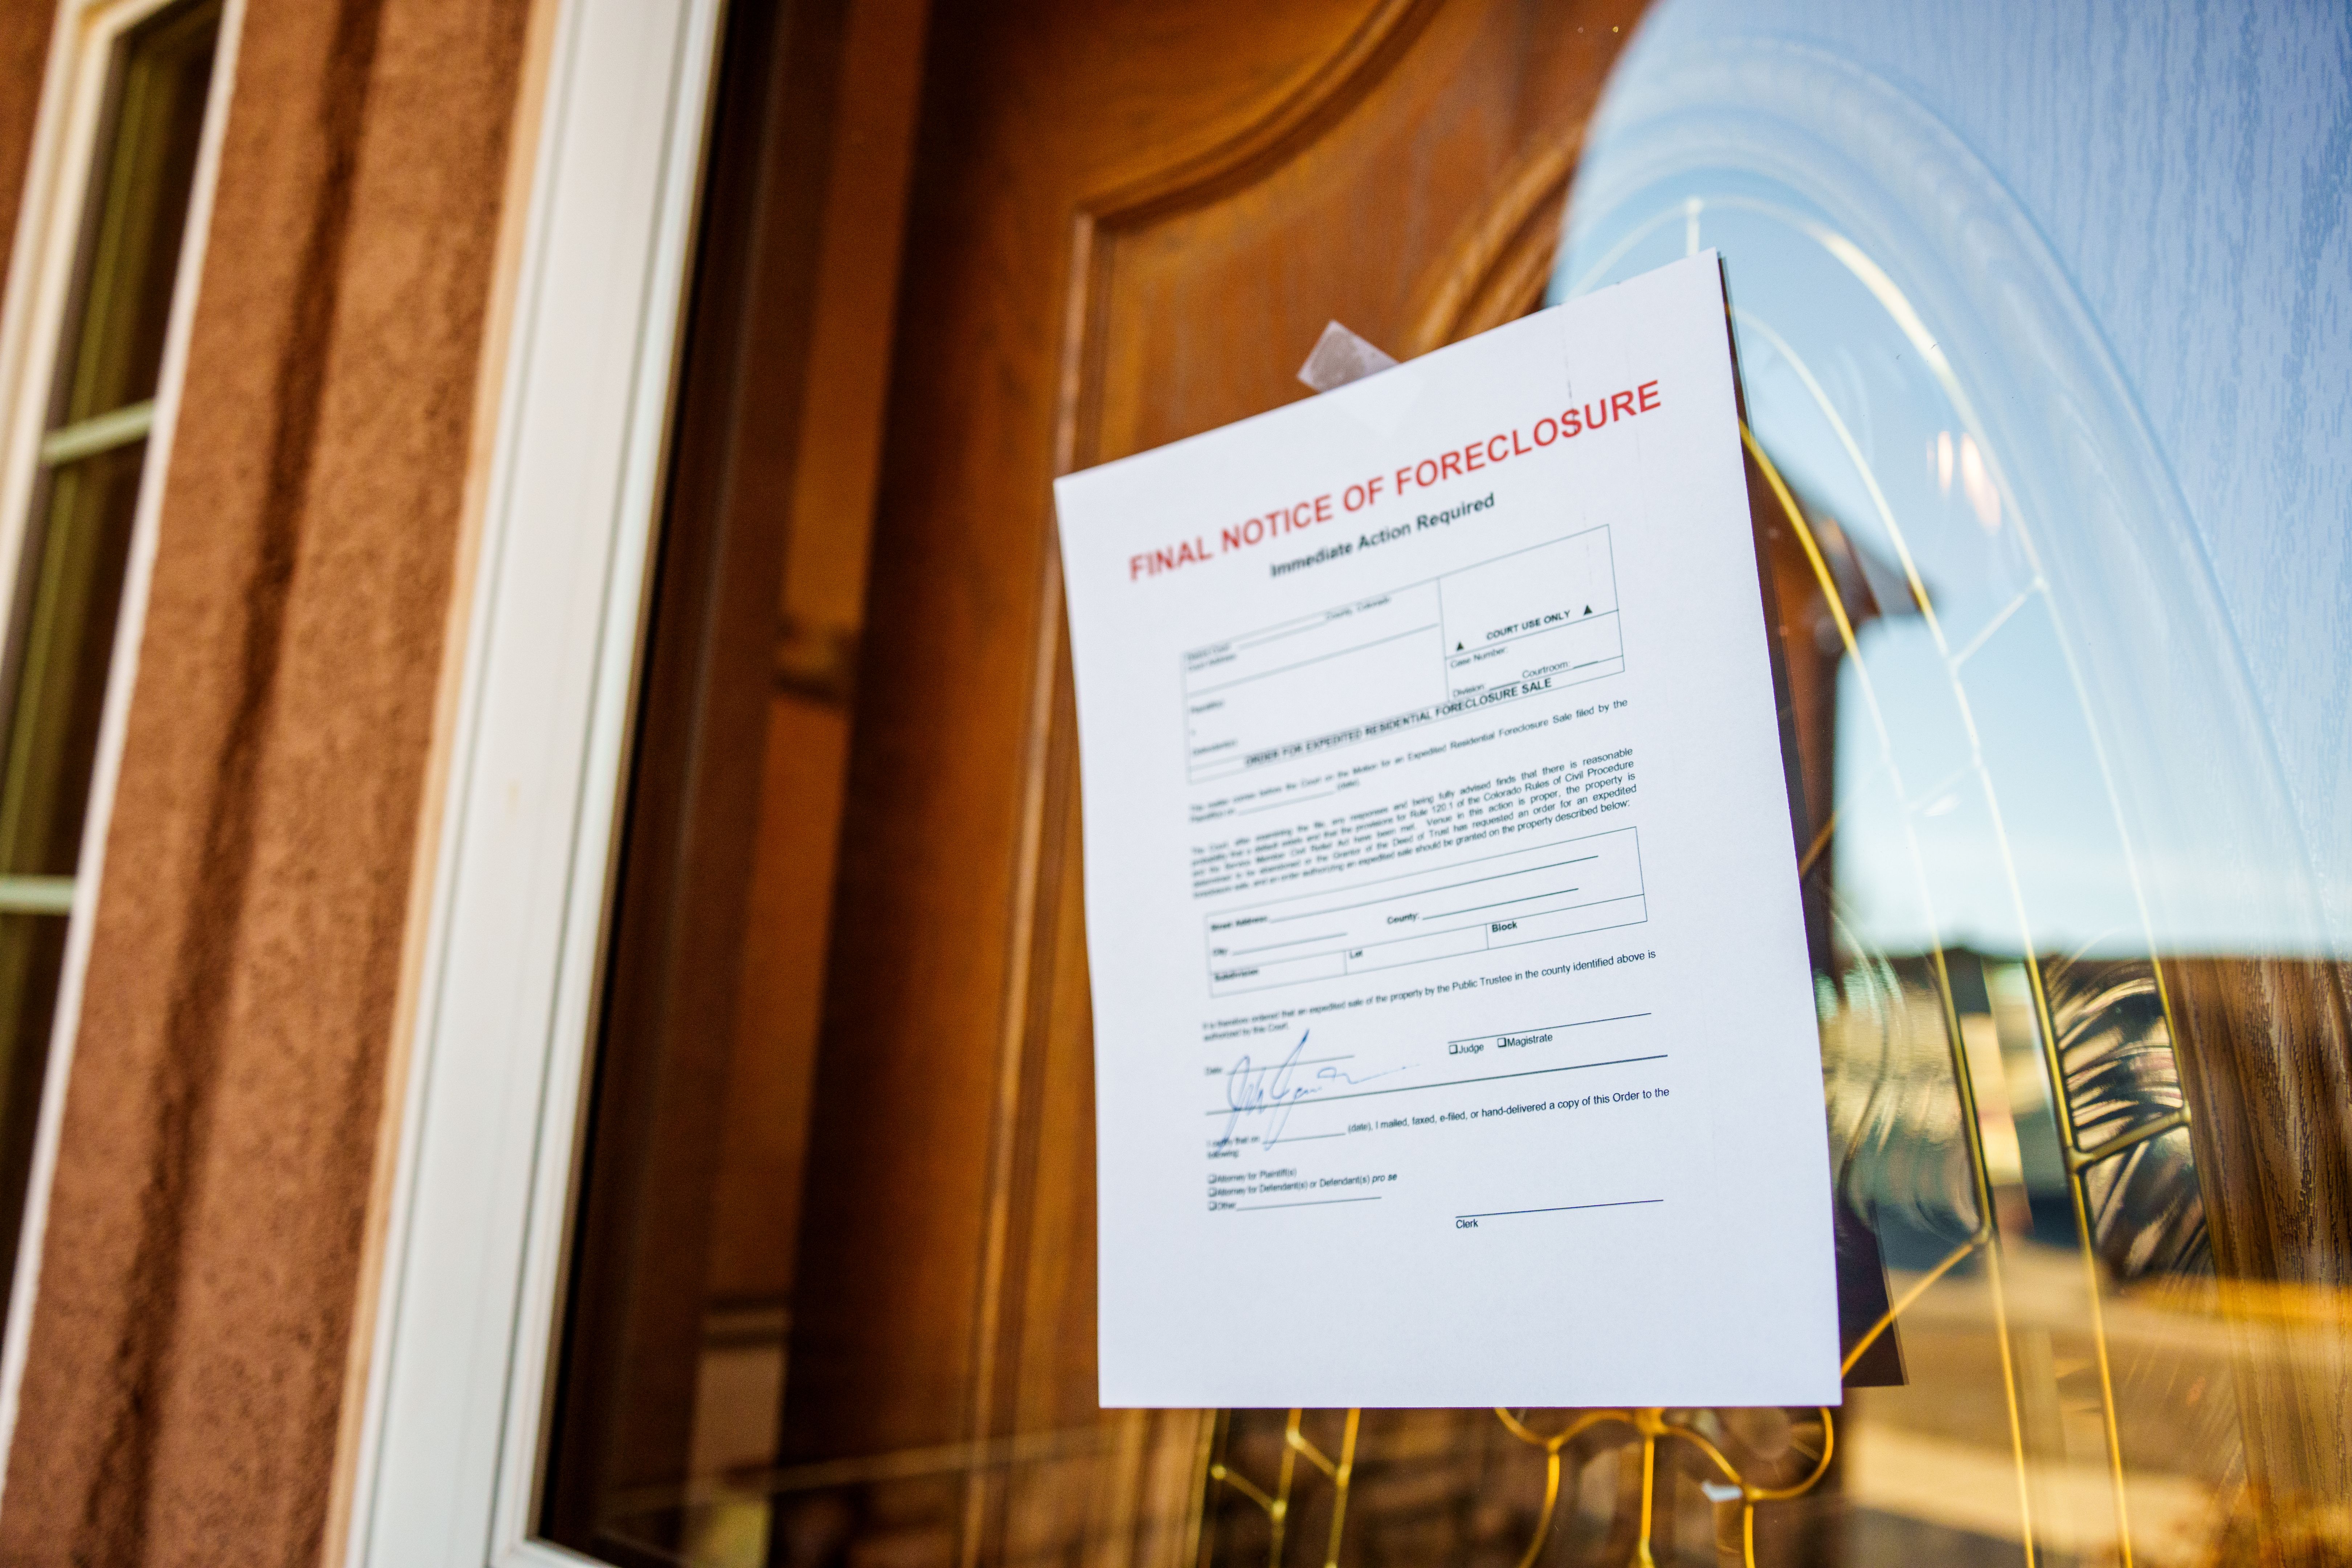 FINAL NOTICE OF FORECLOSURE
Immediate Action Required
District Court ____________ County, Colorado
Court Address:
Plaintiff(s):
v.
Defendant(s):
▲ COURT USE ONLY ▲
Case Number:
Division: ____ Courtroom: ____
ORDER FOR EXPEDITED RESIDENTIAL FORECLOSURE SALE
This matter comes before the Court on the Motion for an Expedited Residential Foreclosure Sale filed by the
Plaintiff(s) on ____________ (date).
The Court, after examining the file, any responses and being fully advised finds that there is reasonable
probability that a default exists and that the provisions for Rule 120.1 of the Colorado Rules of Civil Procedure
and the Service Member Civil Relief Act have been met. Venue in this action is proper, the property is
determined to be abandoned or the Grantor of the Deed of Trust has requested an order for an expedited
foreclosure sale, and an order authorizing an expedited sale should be granted on the property described below:
Street Address: ____________
City: ____________ County: ____________
Subdivision Lot Block
It is therefore ordered that an expedited sale of the property by the Public Trustee in the county identified above is
authorized by this Court.
Date: ____________
❑Judge ❑Magistrate
I certify that on ____________ (date), I mailed, faxed, e-filed, or hand-delivered a copy of this Order to the
following:
❑Attorney for Plaintiff(s)
❑Attorney for Defendant(s) or Defendant(s) pro se
❑Other ____________
Clerk